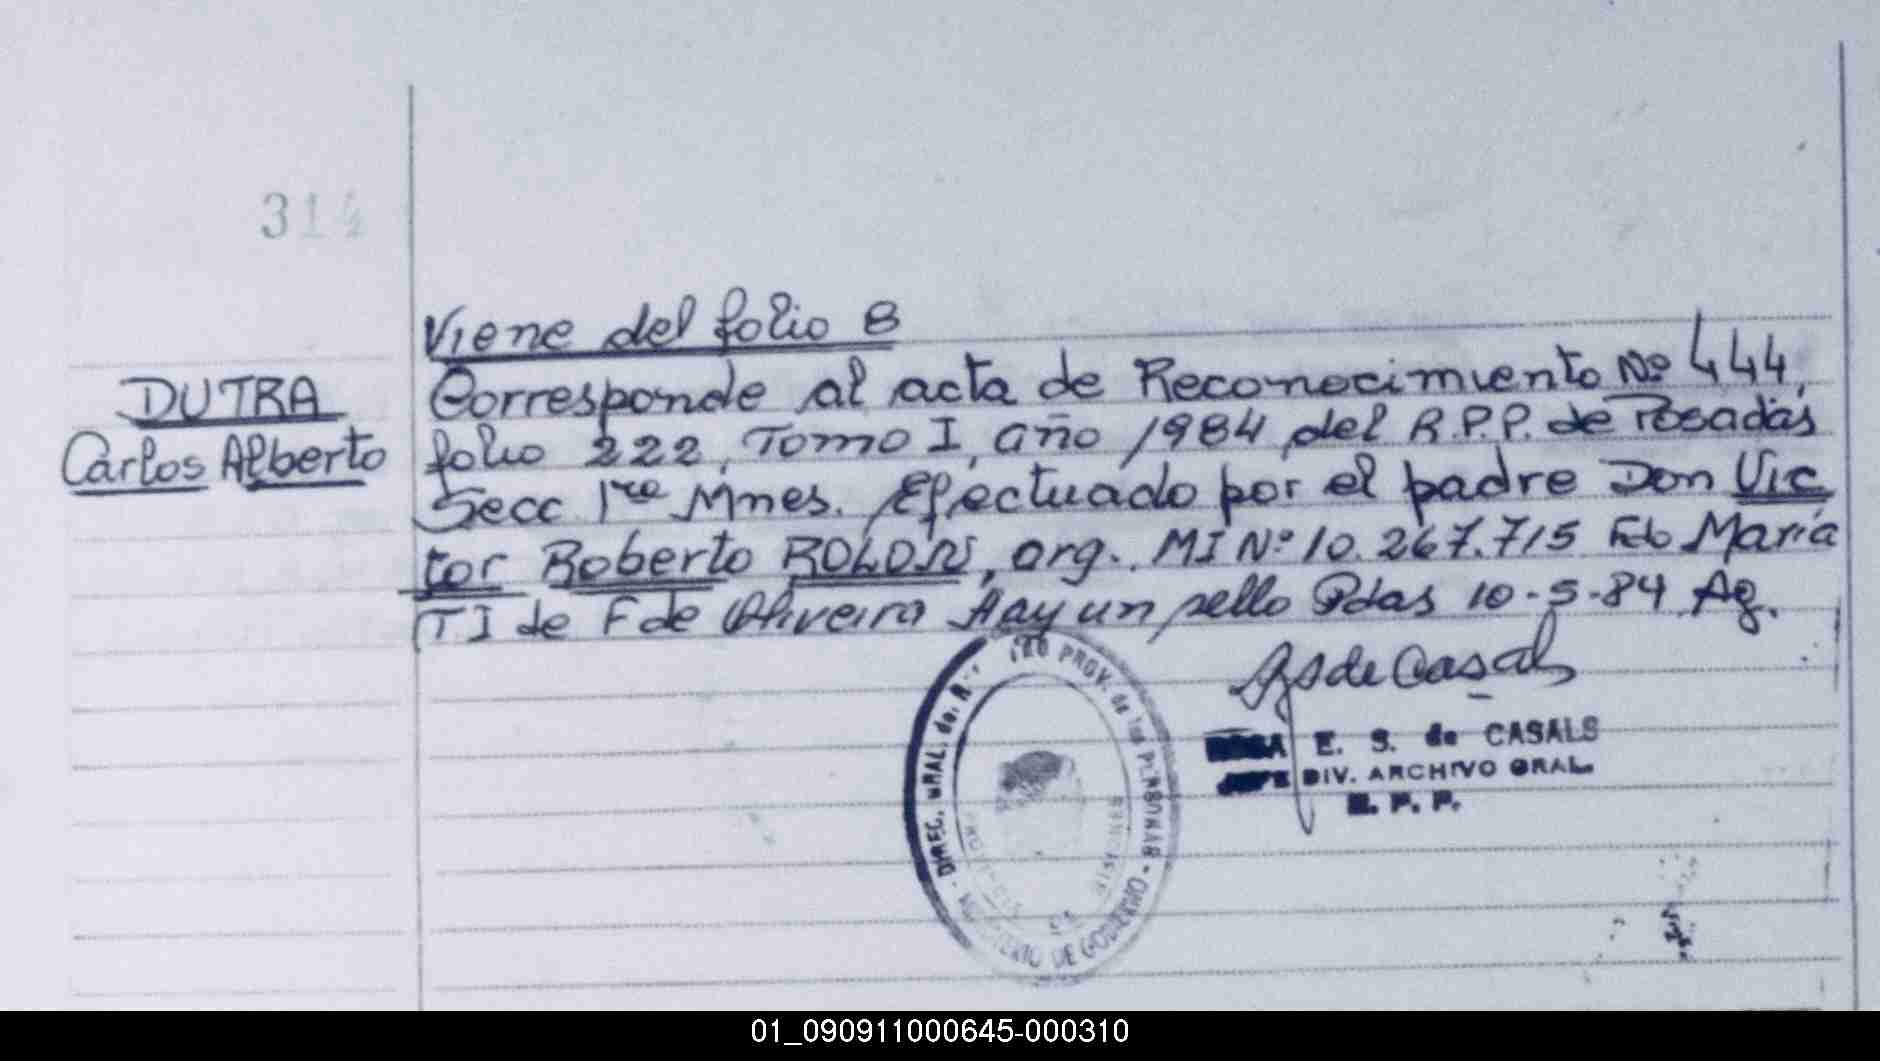 314
Viene del folio 8
DUTRA
Carlos Alberto
Corresponde al acta de Reconocimiento Nº 444,
folio 222, Tomo I, año 1984 del R.P.P. de Posadas
Secc 1ra Mnes. Efectuado por el padre Don Vic
tor Roberto ROLON, arg. MI Nº 10.267.715 Fdo María
T I de F de Oliveira Hay un sello Pdas 10-5-84 Ag.
E. S. de CASALS
JEFE DIV. ARCHIVO GRAL.
R. P. P.
DIREC. GRAL. del PROV. de las PERSONAS - MINISTERIO DE GOBIERNO -
MISIONES
01_090911000645-000310